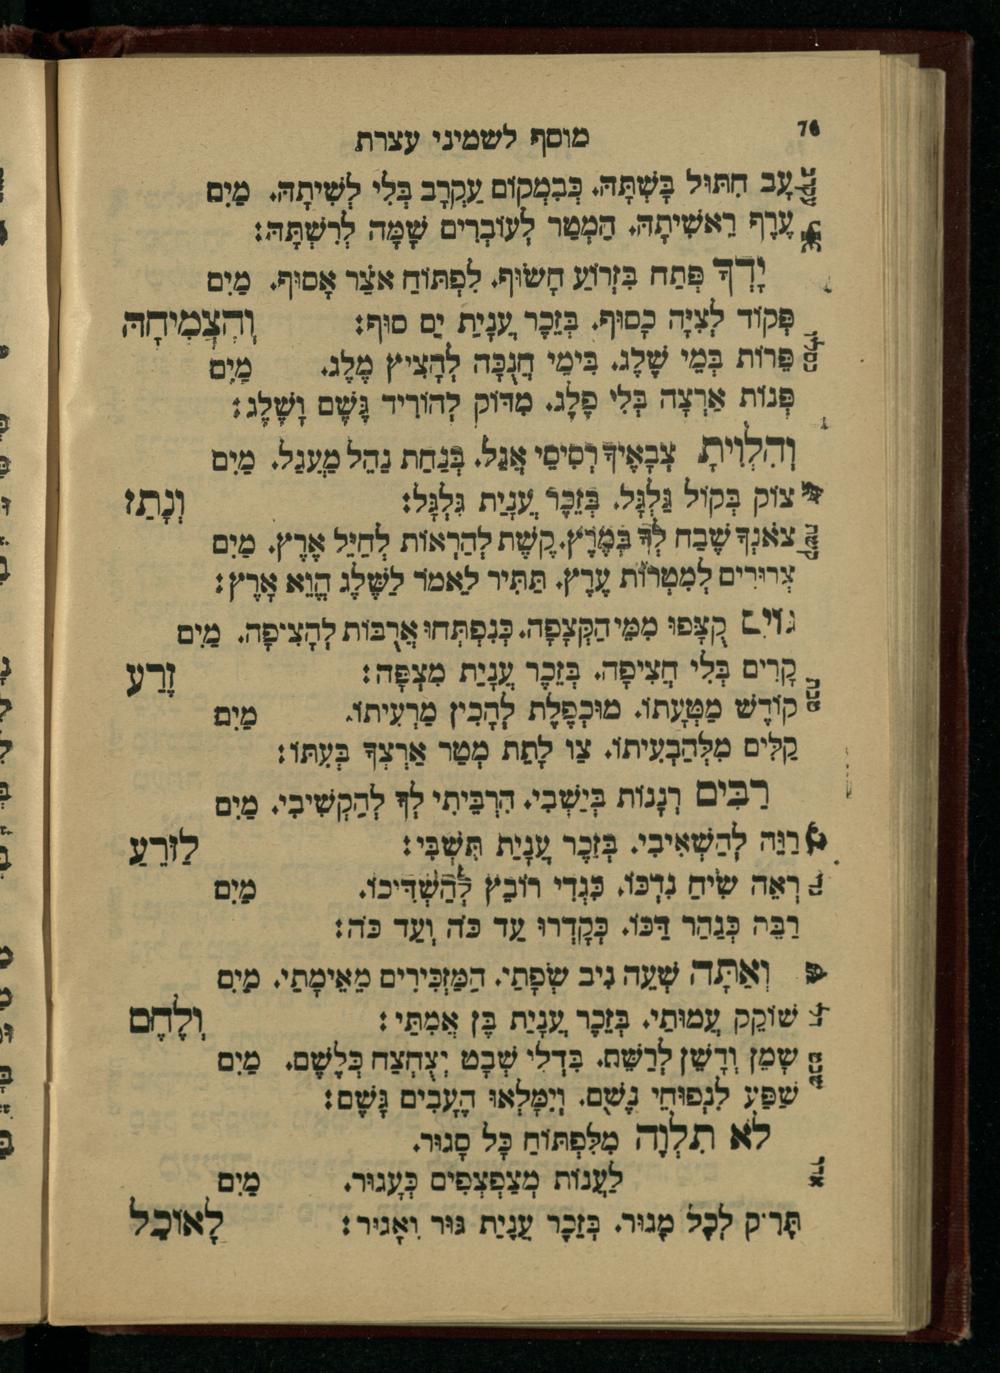 76
מוסף לשמיני עצרת
עָב חִתּוּל בָּשְׁתָּהּ. כְּבִמְקוֹם עַקְרָב בְּלִי לְשִׁיתָהּ. מַיִם
עָרָף רֵאשִׁיתָהּ. הַמְטַר לְעוֹבְרִים שָׁמָּה לְרִשְׁתָּהּ:
יָדְךָ פְּתַח בִּזְרוֹעַ חָשׂוּף. לִפְתּוֹחַ אֹצַר אָסוּף. מַיִם
פְּקוֹד לְצִיָּה כָסוּף. בְּזֵכֶר עֲנָיַת יַם סוּף: וְהִצְמִיחָהּ
כסלו פֵּרוֹת בְּמֵי שֶׁלֶג. בִּימֵי חֲנֻכָּה לְהָצִיץ מֶלֶג. מַיִם
פְּנוֹת אַרְצָה בְּלִי פֶלֶג. מִדּוֹק לְהוֹרִיד גֶּשֶׁם וָשֶׁלֶג:
וְהִלְוִיתָ צְבָאֶיךָ רְסִיסֵי אֶגֶל. בְּנַחַת נַהֵל מַעְגַל. מַיִם
צוֹק בְּקוֹל גַּלְגָּל. בְּזֵכֶר עֲנָיַת גִּלְגָּל: וְנָתַן
קשת צֹאנְךָ שֶׁבַח לְךָ בְּמֶרֶץ. קֶשֶׁת לְהֵרָאוֹת לְחַיֵּל אֶרֶץ. מַיִם
צְרוּרִים לְמִטְרוֹת עָרֶץ. תַּתִּיר לֵאמֹר לַשֶּׁלֶג הֱוֵא אָרֶץ:
גוים קֻצְּפוּ מִמֵּי הַקְצָפָה. כְּנִפְתְּחוּ אֲרֻבּוֹת לְהָצִיפָה. מַיִם
קָרִים בְּלִי חֲצִיפָה. בְּזֵכֶר עֲנָיַת מִצְפָּה: זֶרַע
טבת קוֹדֶשׁ מַטָּעָתוֹ. מוּכְפֶּלֶת לְהָכִין מַרְעִיתוֹ. מַיִם
קַלִּים מִלְּהַבְעִיתוֹ. צַו לָתֵת מְטַר אַרְצְךָ בְּעִתּוֹ:
רַבִּים רְנָנוֹת בְּיַשְׁבִי. הִרְבֵּיתִי לְךָ לְהַקְשִׁיבִי. מַיִם
רַוֵּה לְהַשְׁאִיבִי. בְּזֵכֶר עֲנָיַת תִּשְׁבִּי: לַזֹּרֵעַ
גדי רְאֵה שִׂיחַ נִדְכּוֹ. כִּגְדִי רוֹבֵץ לְהַשְׁדִיכוֹ. מַיִם
רַבֵּה כְּנַהַר דַּכּוֹ. כְּקָדְרוּ עַד כֹּה וְעַד כֹּה:
וְאַתָּה שְׁעֵה נִיב שְׂפָתַי. הַמַּזְכִּירִים מֵאֵימָתַי. מַיִם
שׁוֹקֵק עֲמוּתַי. בְּזֵכֶר עֲנָיַת בֶּן אֲמִתַּי: וְלֶחֶם
שבט שָׁמֵן וְדָשֵׁן לְרַשֵּׁם. בִּדְלִי שְׁבָט יְצֻחְצַח כְּלֶשֶׁם. מַיִם
שֶׁפַע לִנְפוּחֵי נָשֶׁם. וְיִמָּלְאוּ הֶעָבִים גֶּשֶׁם:
לֹא תִלְוֶה מִלִּפְתּוֹחַ כָּל סָגוּר.
אדר לַעֲנוֹת מְצַפְצְפִים כְּעָגוּר. מַיִם
תָּרִיק לְכָל מָגוּר. בְּזֵכֶר עֲנָיַת גּוּר וְאָגוּר: לָאוֹכֵל